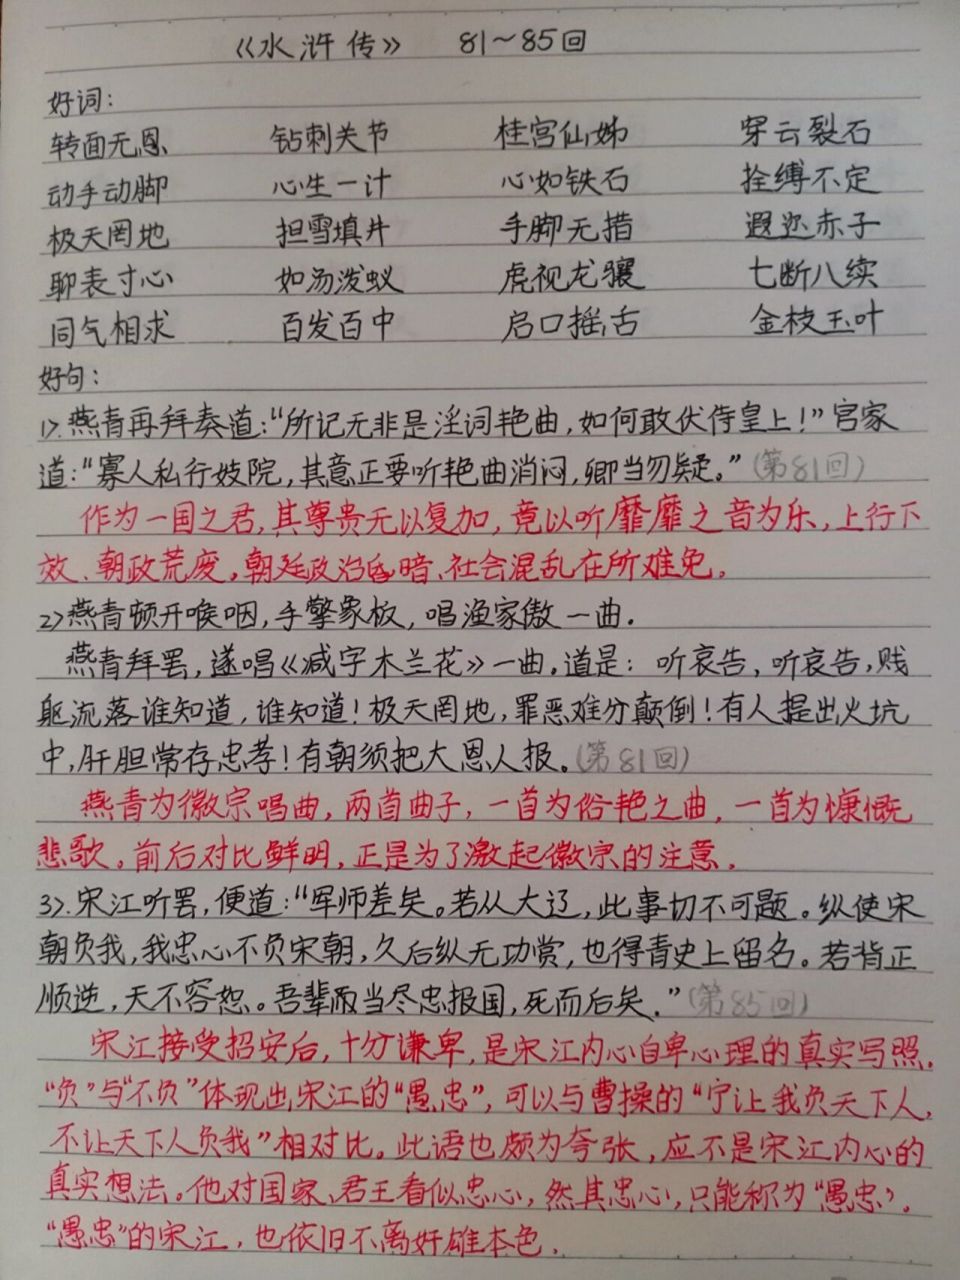 《水浒传》 81~85回
好词:
转面无恩 钻刺关节 桂宫仙姊 穿云裂石
动手动脚 心生一计 心如铁石 拴缚不定
极天罔地 担雪填井 手脚无措 遐迩赤子
聊表寸心 如汤泼蚁 虎视龙骧 七断八续
同气相求 百发百中 启口摇舌 金枝玉叶
好句:
1>.燕青再拜奏道:“所记无非是淫词艳曲,如何敢伏侍皇上!”官家
道:“寡人私行妓院,其意正要听艳曲消闷,卿当勿疑。”(第81回)
作为一国之君,其尊贵无以复加,竟以听靡靡之音为乐,上行下
效、朝政荒废。朝廷政治昏暗、社会混乱在所难免。
2>燕青顿开喉咽,手擎象板,唱渔家傲一曲.
燕青拜罢,遂唱《减字木兰花》一曲.道是: 听哀告,听哀告,贱
躯流落谁知道,谁知道!极天罔地,罪恶难分颠倒!有人提出火坑
中,肝胆常存忠孝!有朝须把大恩人报。(第81回)
燕青为徽宗唱曲,两首曲子,一首为俗艳之曲,一首为慷慨
悲歌。前后对比鲜明,正是为了激起徽宗的注意.
3>.宋江听罢,便道:“军师差矣。若从大辽,此事切不可题。纵使宋
朝负我,我忠心不负宋朝,久后纵无功赏,也得青史上留名。若背正
顺逆,天不容恕。吾辈当尽忠报国,死而后矣.”(第85回)
宋江接受招安后,十分谦卑,是宋江内心自卑心理的真实写照.
“负”与“不负”体现出宋江的“愚忠”,可以与曹操的“宁让我负天下人,
不让天下人负我”相对比。此语也颇为夸张,应不是宋江内心的
真实想法。他对国家、君王看似忠心,然其忠心,只能称为“愚忠”.
“愚忠”的宋江,也依旧不离奸雄本色.